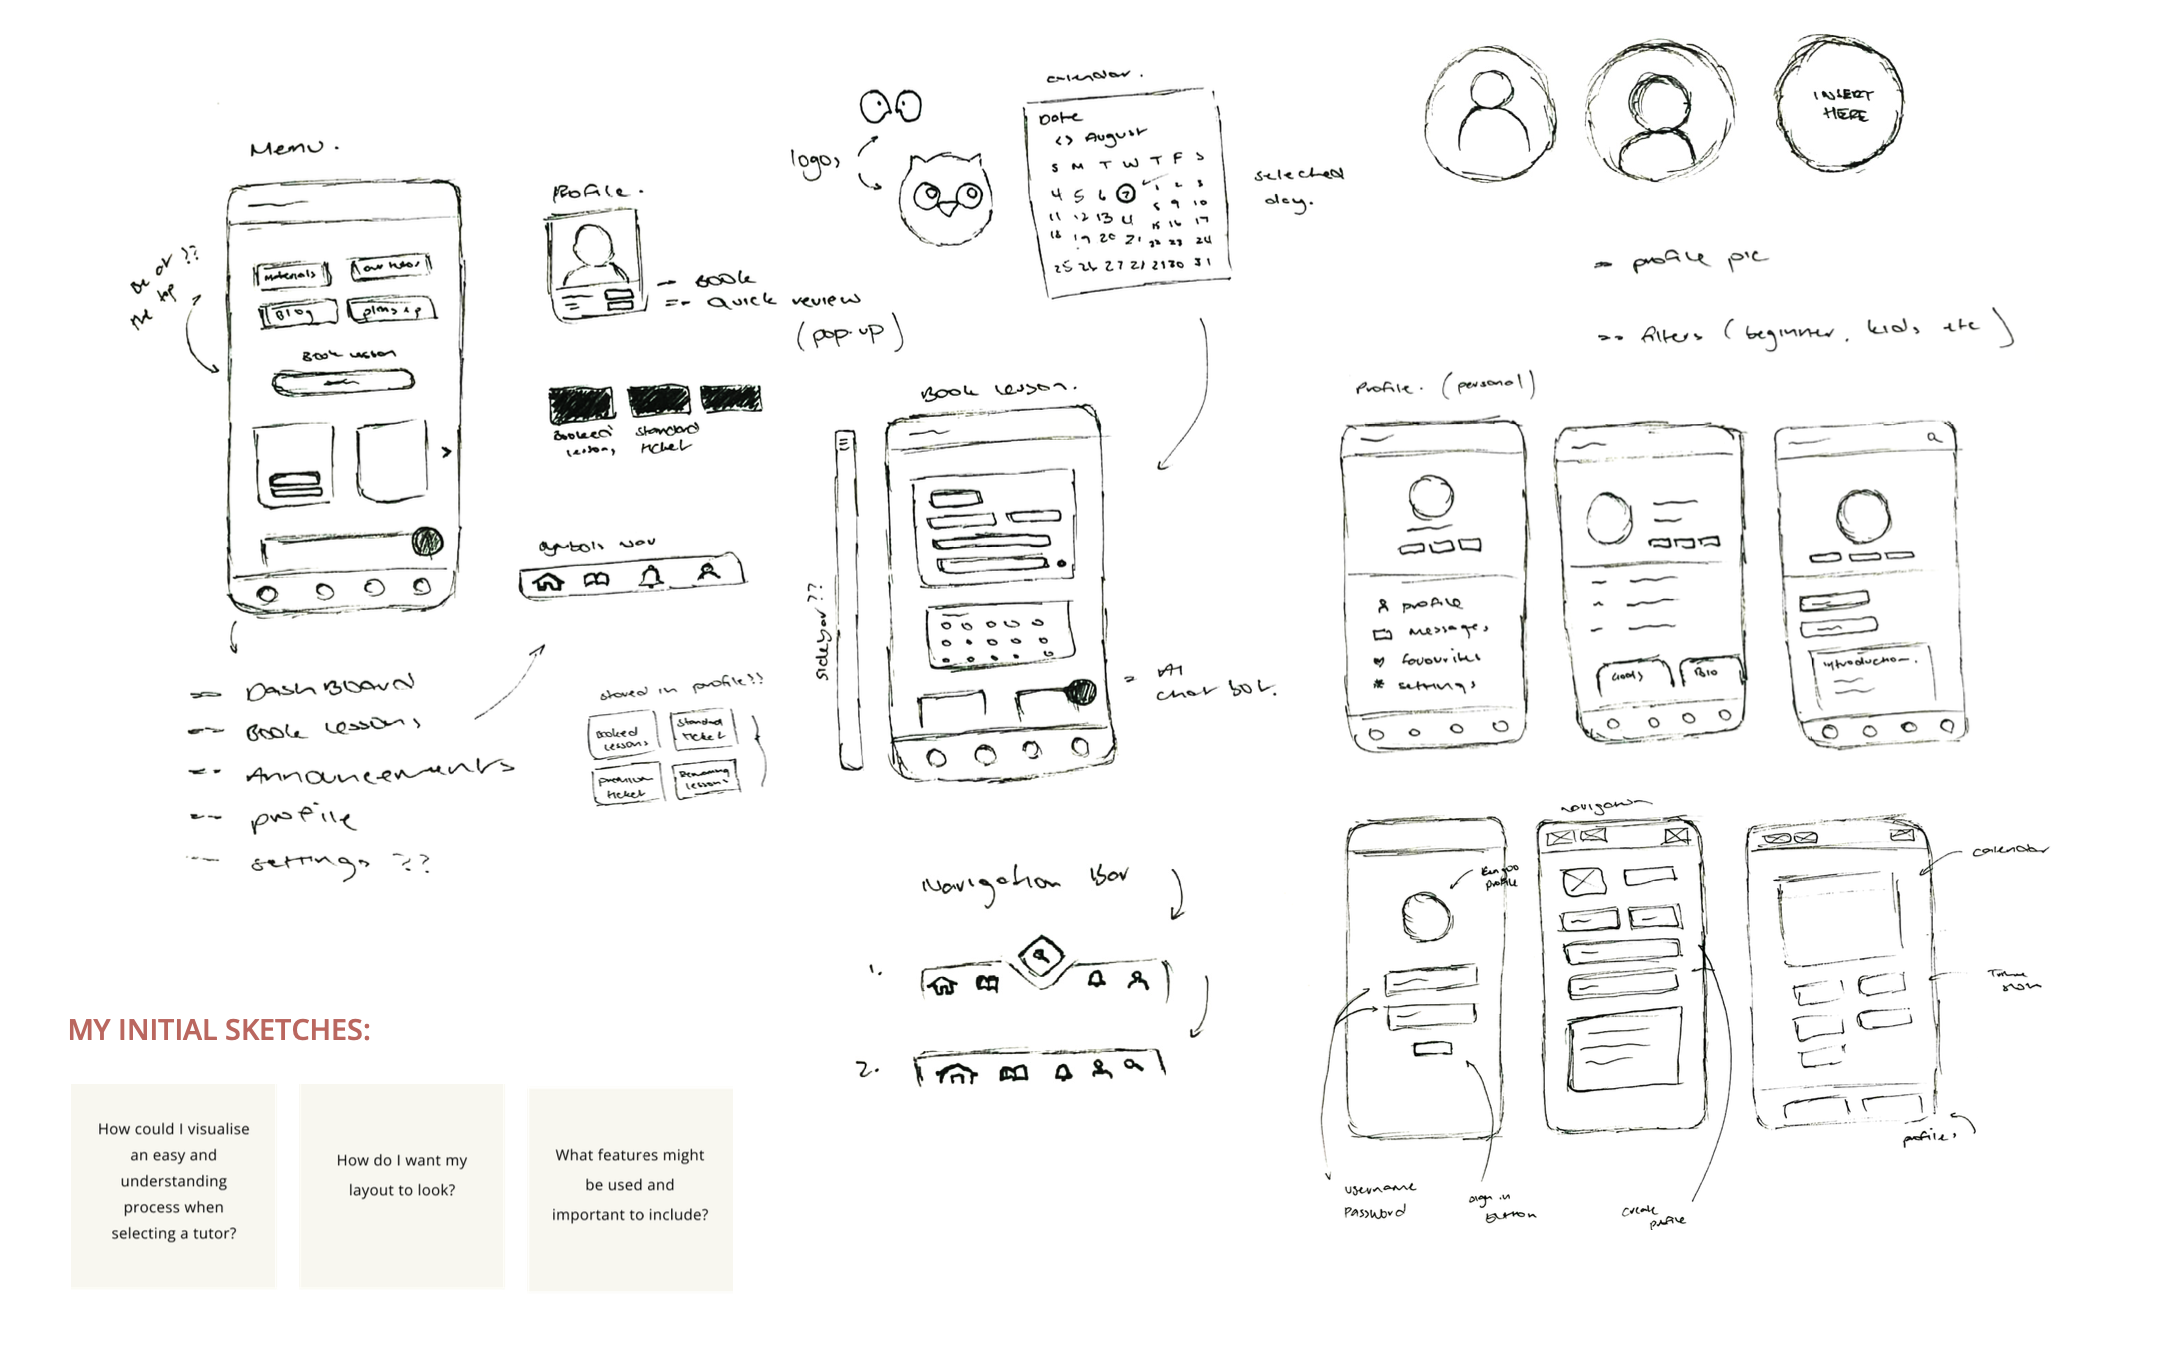 Menu.
be at ??
the top
Materials
our tutors
Blog
Book lesson
DashBoard
Book lessons
Announcements
profile
settings ??
Profile.
Book
Quick review
(pop-up)
Booked
lessons
standard
ticket
symbols nav
stored in profile??
Booked
lessons
Standard
ticket
premium
ticket
Remaining
lessons
logos
calendar.
Date
<> August
S M T W T F S
1 2 3
4 5 6 7 8 9 10
11 12 13 14 15 16 17
18 19 20 21 22 23 24
25 26 27 28 29 30 31
selected
day.
Book lesson.
sidebar??
AI
chat bot.
Navigation Bar
1.
2.
INSERT
HERE
profile pic
filters (beginner, kids etc)
Profile. (personal)
profile
messages
favourites
settings
Goals
Bio
introduction.
navigation
profile
username
password
sign in
button
create
profile
calendar
profiles
MY INITIAL SKETCHES:
How could I visualise
an easy and
understanding
process when
selecting a tutor?
How do I want my
layout to look?
What features might
be used and
important to include?